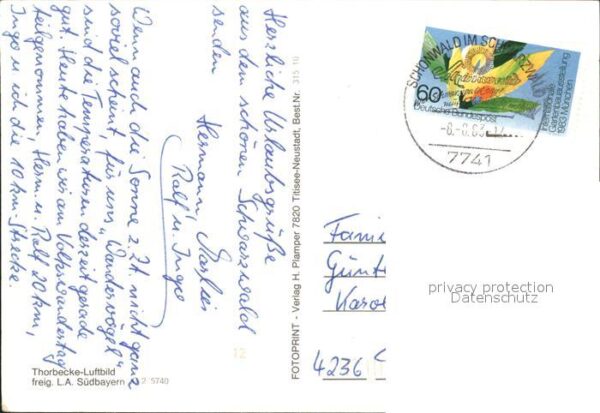 Herzliche Urlaubsgrüße
aus dem schönen Schwarzwald
senden
Hermann,
Ralf u. Ingo
Wenn auch die Sonne z. Zt. nicht ganz
soviel scheint, für uns „Wandervögel“
sind die Temperaturen derzeit gerade
gut. Heute haben wir am Volkswandertag
teilgenommen, Herm. u. Ralf 20 km,
Ingo u. ich die 10 km-Strecke.
Thorbecke-Luftbild
freig. L.A. Südbayern
5740
FOTOPRINT - Verlag H. Plamper 7820 Titisee-Neustadt, Best.Nr. 315
12
SCHONWALD IM
7741
60
Deutsche Bundespost
Internationale
Gartenbauausstellung
1983 München
Famil
Günt
Karo
4236
privacy protection
Datenschutz